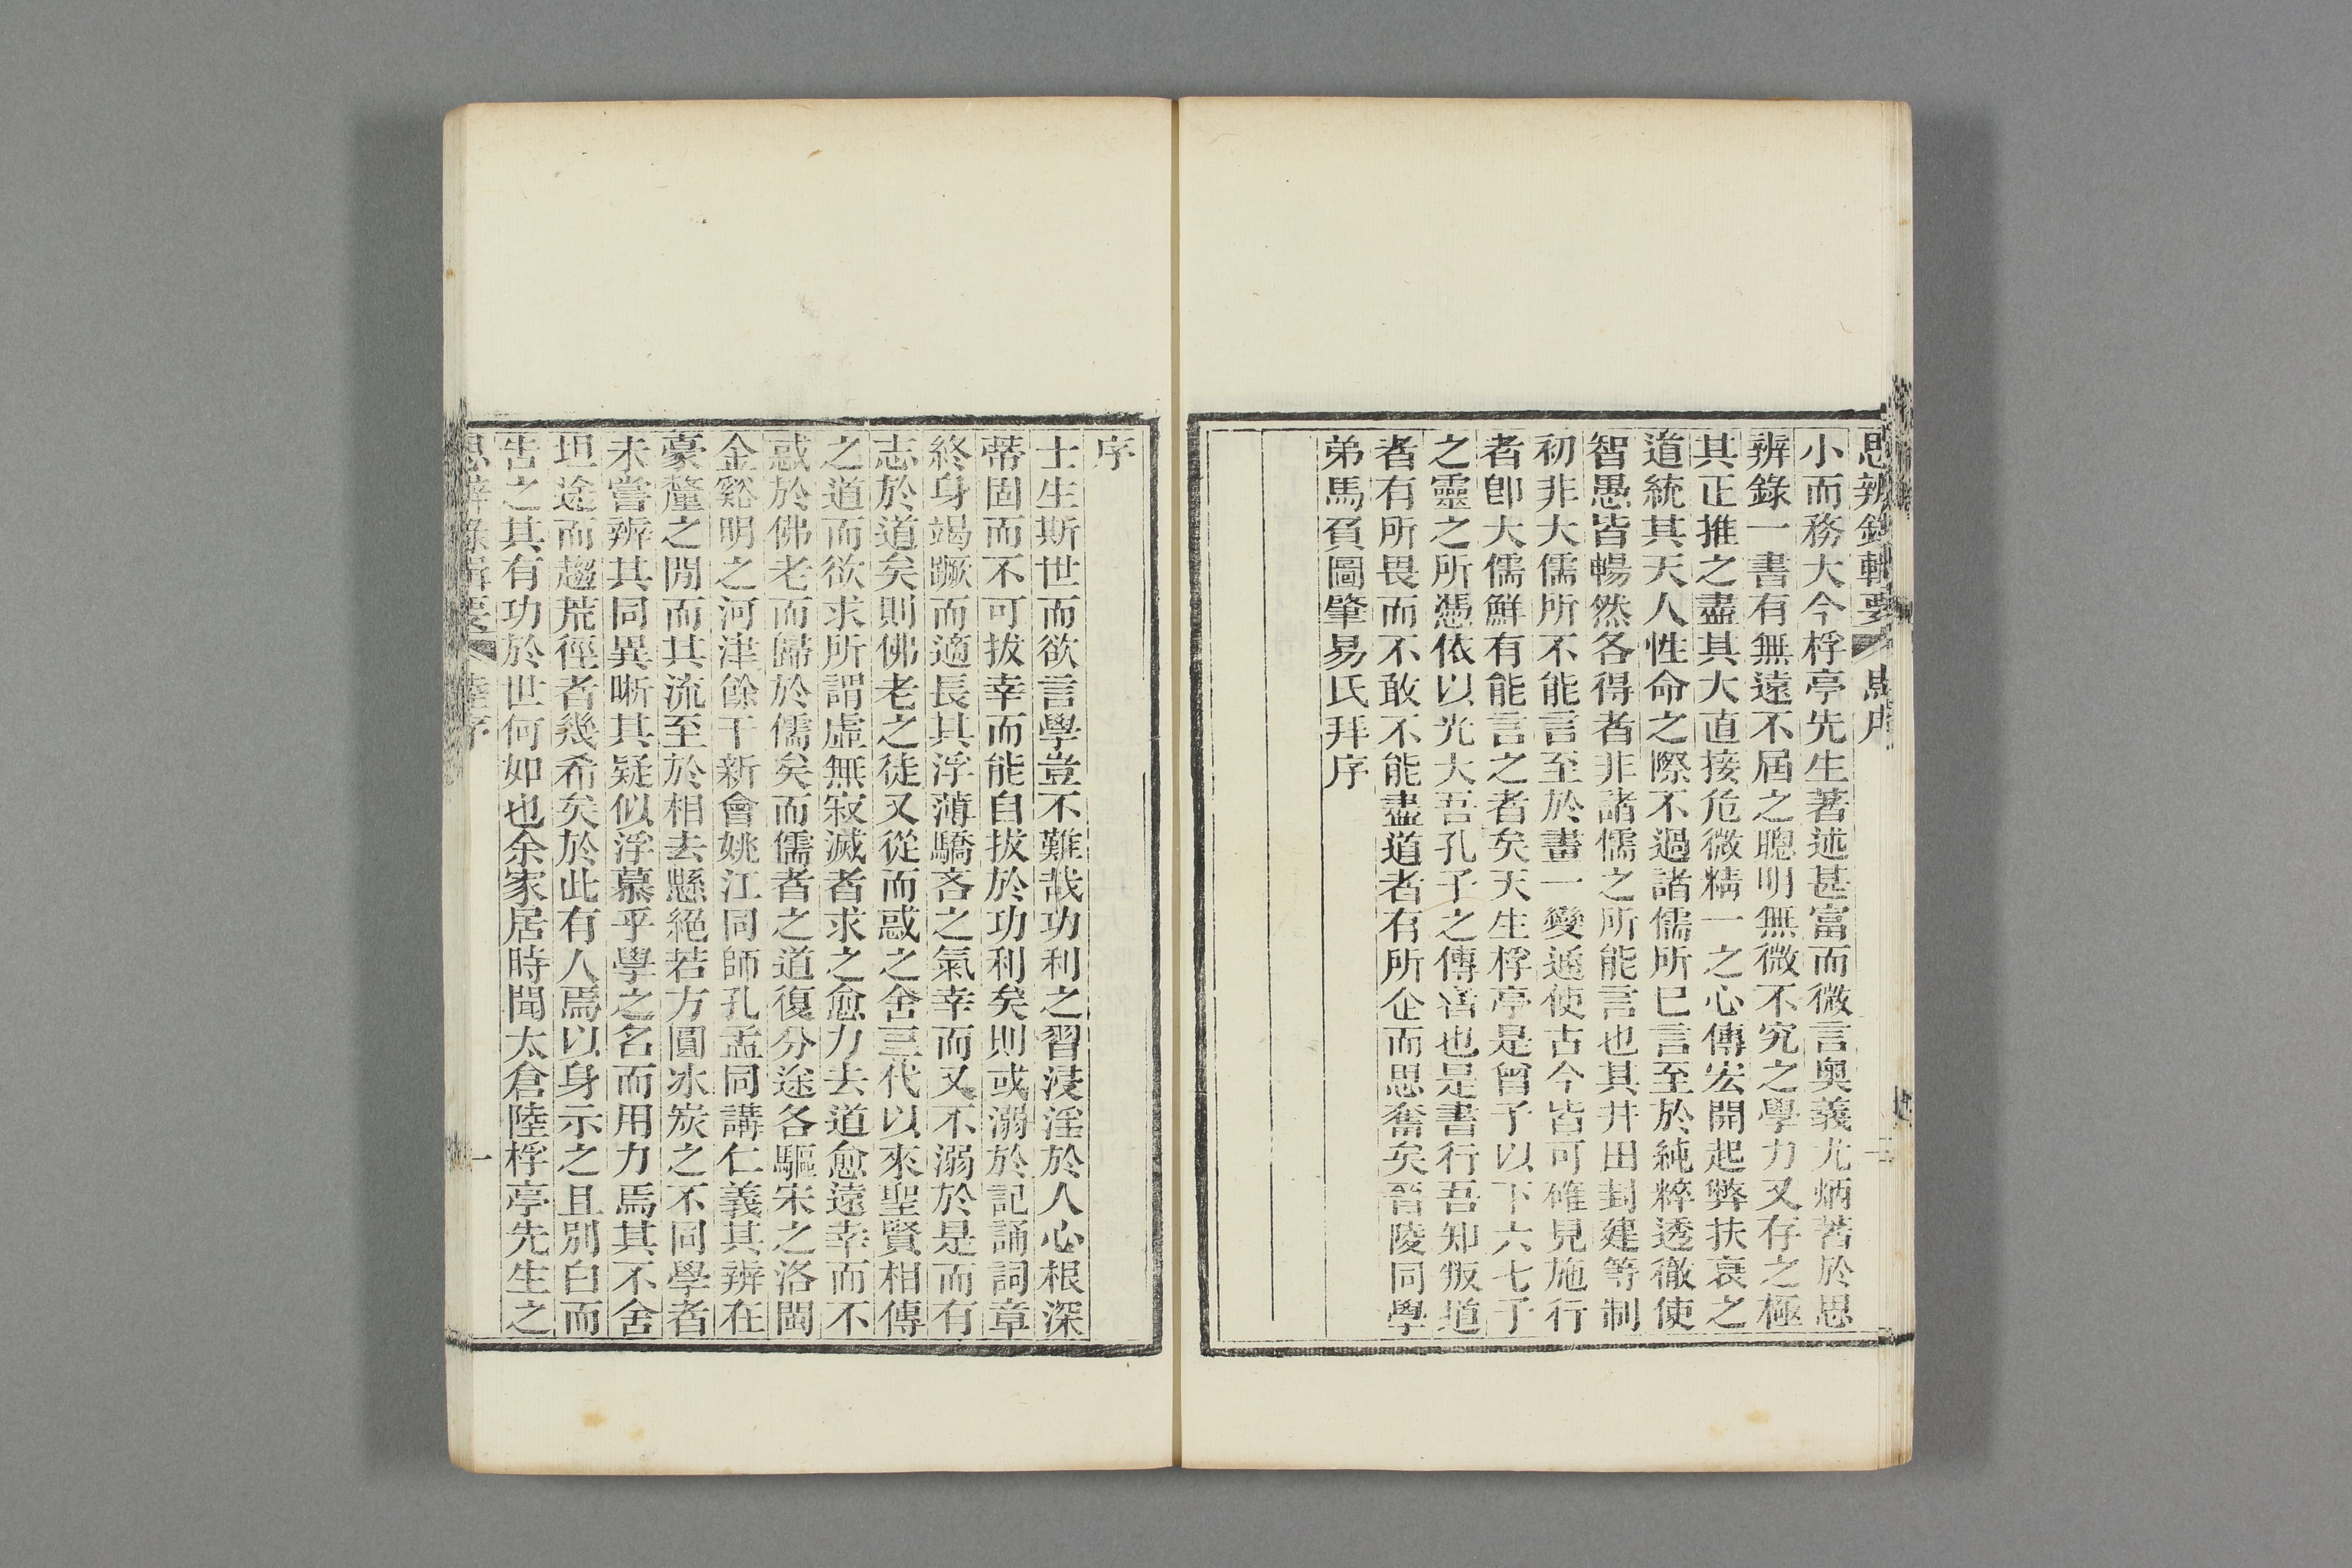 思辨錄輯要 馬序
小而務大今桴亭先生著述甚富而微言奧義尤炳著於思
辨錄一書有無遠不屆之聰明無微不究之學力又存之極
其正推之盡其大直接危微精一之心傳宏開起弊扶衰之
道統其天人性命之際不過諸儒所已言至於純粹透徹使
智愚皆暢然各得者非諸儒之所能言也其井田封建等制
初非大儒所不能言至於畫一變通使古今皆可確見施行
者卽大儒鮮有能言之者矣天生桴亭是曾子以下六七子
之靈之所憑依以光大吾孔子之傳者也是書行吾知叛道
者有所畏而不敢不能盡道者有所企而思奮矣晉陵同學
弟馬負圖肇易氏拜序
序
士生斯世而欲言學豈不難哉功利之習浸淫於人心根深
蒂固而不可拔幸而能自拔於功利矣則或溺於記誦詞章
終身竭蹶而適長其浮薄驕吝之氣幸而又不溺於是而有
志於道矣則佛老之徒又從而惑之舍三代以來聖賢相傳
之道而欲求所謂虛無寂滅者求之愈力去道愈遠幸而不
惑於佛老而歸於儒矣而儒者之道復分途各驅宋之洛閩
金谿明之河津餘干新會姚江同師孔孟同講仁義其辨在
豪釐之閒而其流至於相去懸絕若方圓冰炭之不同學者
未嘗辨其同異晰其疑似浮慕乎學之名而用力焉其不舍
坦途而趨荒徑者幾希矣於此有人焉以身示之且別白而
告之其有功於世何如也余家居時聞太倉陸桴亭先生之
思辨錄輯要 陸序 一